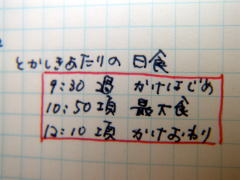 とかしきあたりの 日食
9:30 過 かけはじめ
10:50 頃 最大食
12:10 頃 かけおわり